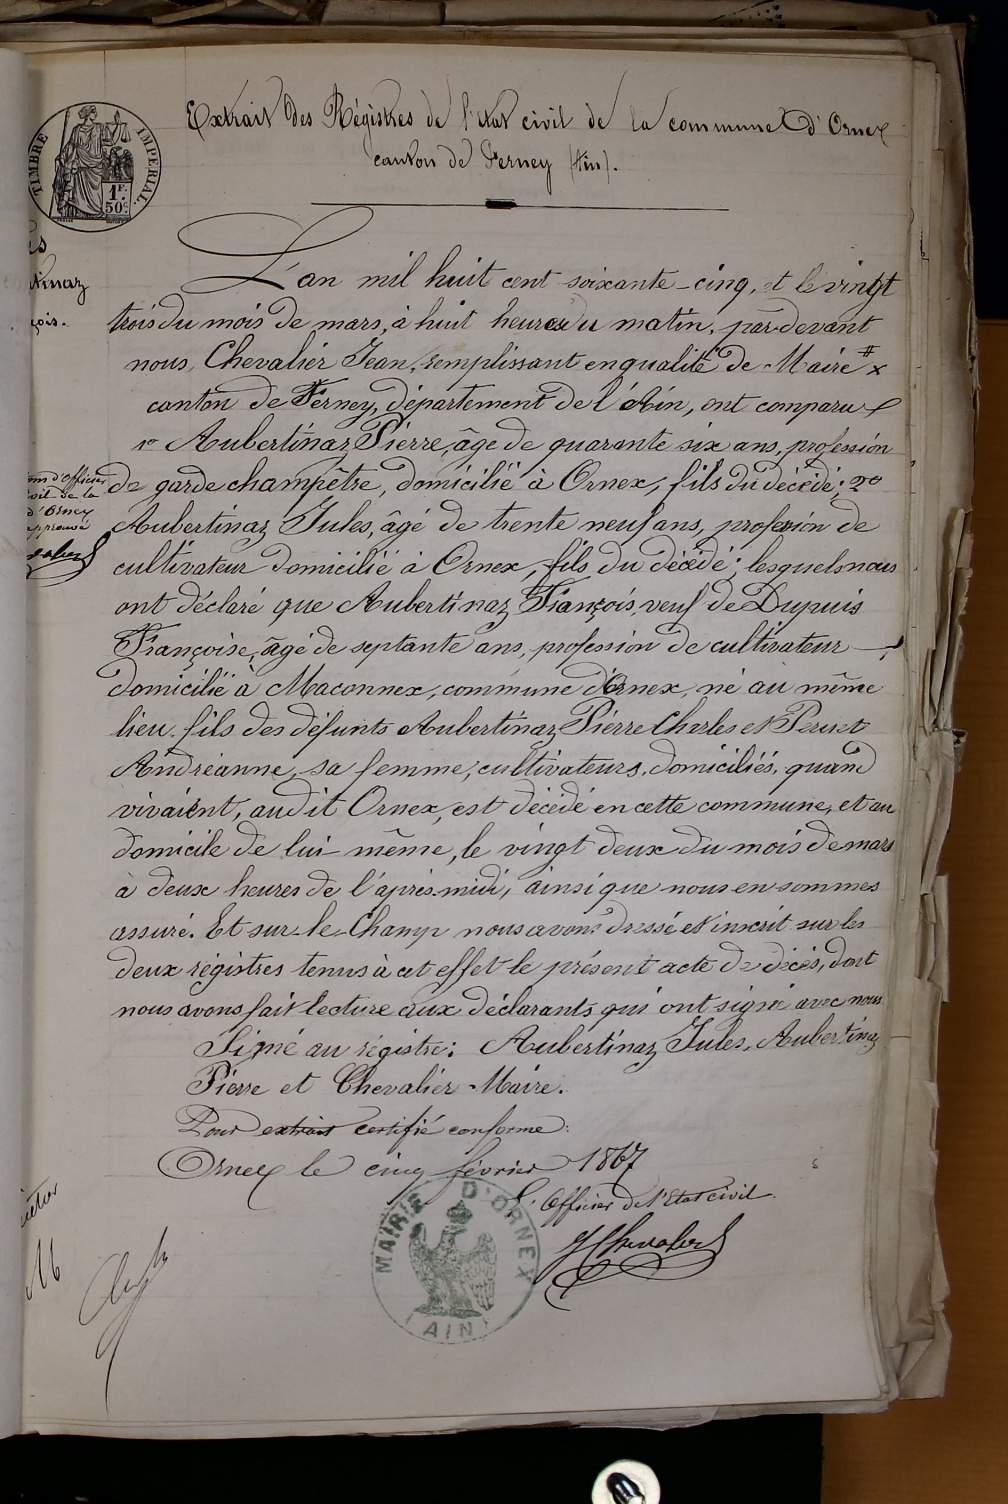 Extrait des Régistres de l'état civil de la commune d'Ornex
canton de Ferney (Ain).
TIMBRE IMPERIAL
1F.
50c.
tinaz
çois.
L'an mil huit cent soixante-cinq, et le vingt
trois du mois de mars, à huit heures du matin, par-devant
nous, Chevalier Jean, remplissant en qualité de Maire # x
canton de Ferney, département de l'Ain, ont comparu
1º Aubertinaz Pierre, âge de quarante six ans, profession
de garde champêtre, domicilié à Ornex, fils du décédé; 2º
Aubertinaz Jules, âgé de trente neuf ans, profession de
cultivateur domicilié à Ornex, fils du décédé; lesquels nous
ont déclaré que Aubertinaz François, veuf de Dupuis
Françoise, âgé de septante ans, profession de cultivateur
domicilié à Maconnex, commune d'Ornex, né au même
lieu. fils des défunts Aubertinaz Pierre Charles et Perret
Andréanne, sa femme, cultivateurs, domiciliés, quand
vivaient, audit Ornex, est décédé en cette commune, et au
domicile de lui-même, le vingt deux du mois de mars
à deux heures de l'après-midi, ainsi que nous en sommes
assuré. Et sur-le-Champ nous avons dressé et inscrit sur les
deux régistres tenus à cet effet le présent acte de décès, dont
nous avons fait lecture aux déclarants qui ont signé avec nous
Signé au régistre: Aubertinaz Jules, Aubertinaz
Pierre et Chevalier-Maire.
Pour extrait certifié conforme:
Ornex le cinq février 1867
L'Officier de l'Etat civil
d'officier
de la
d'Ornex
approuvé
MAIRIE D'ORNEX
(AIN)